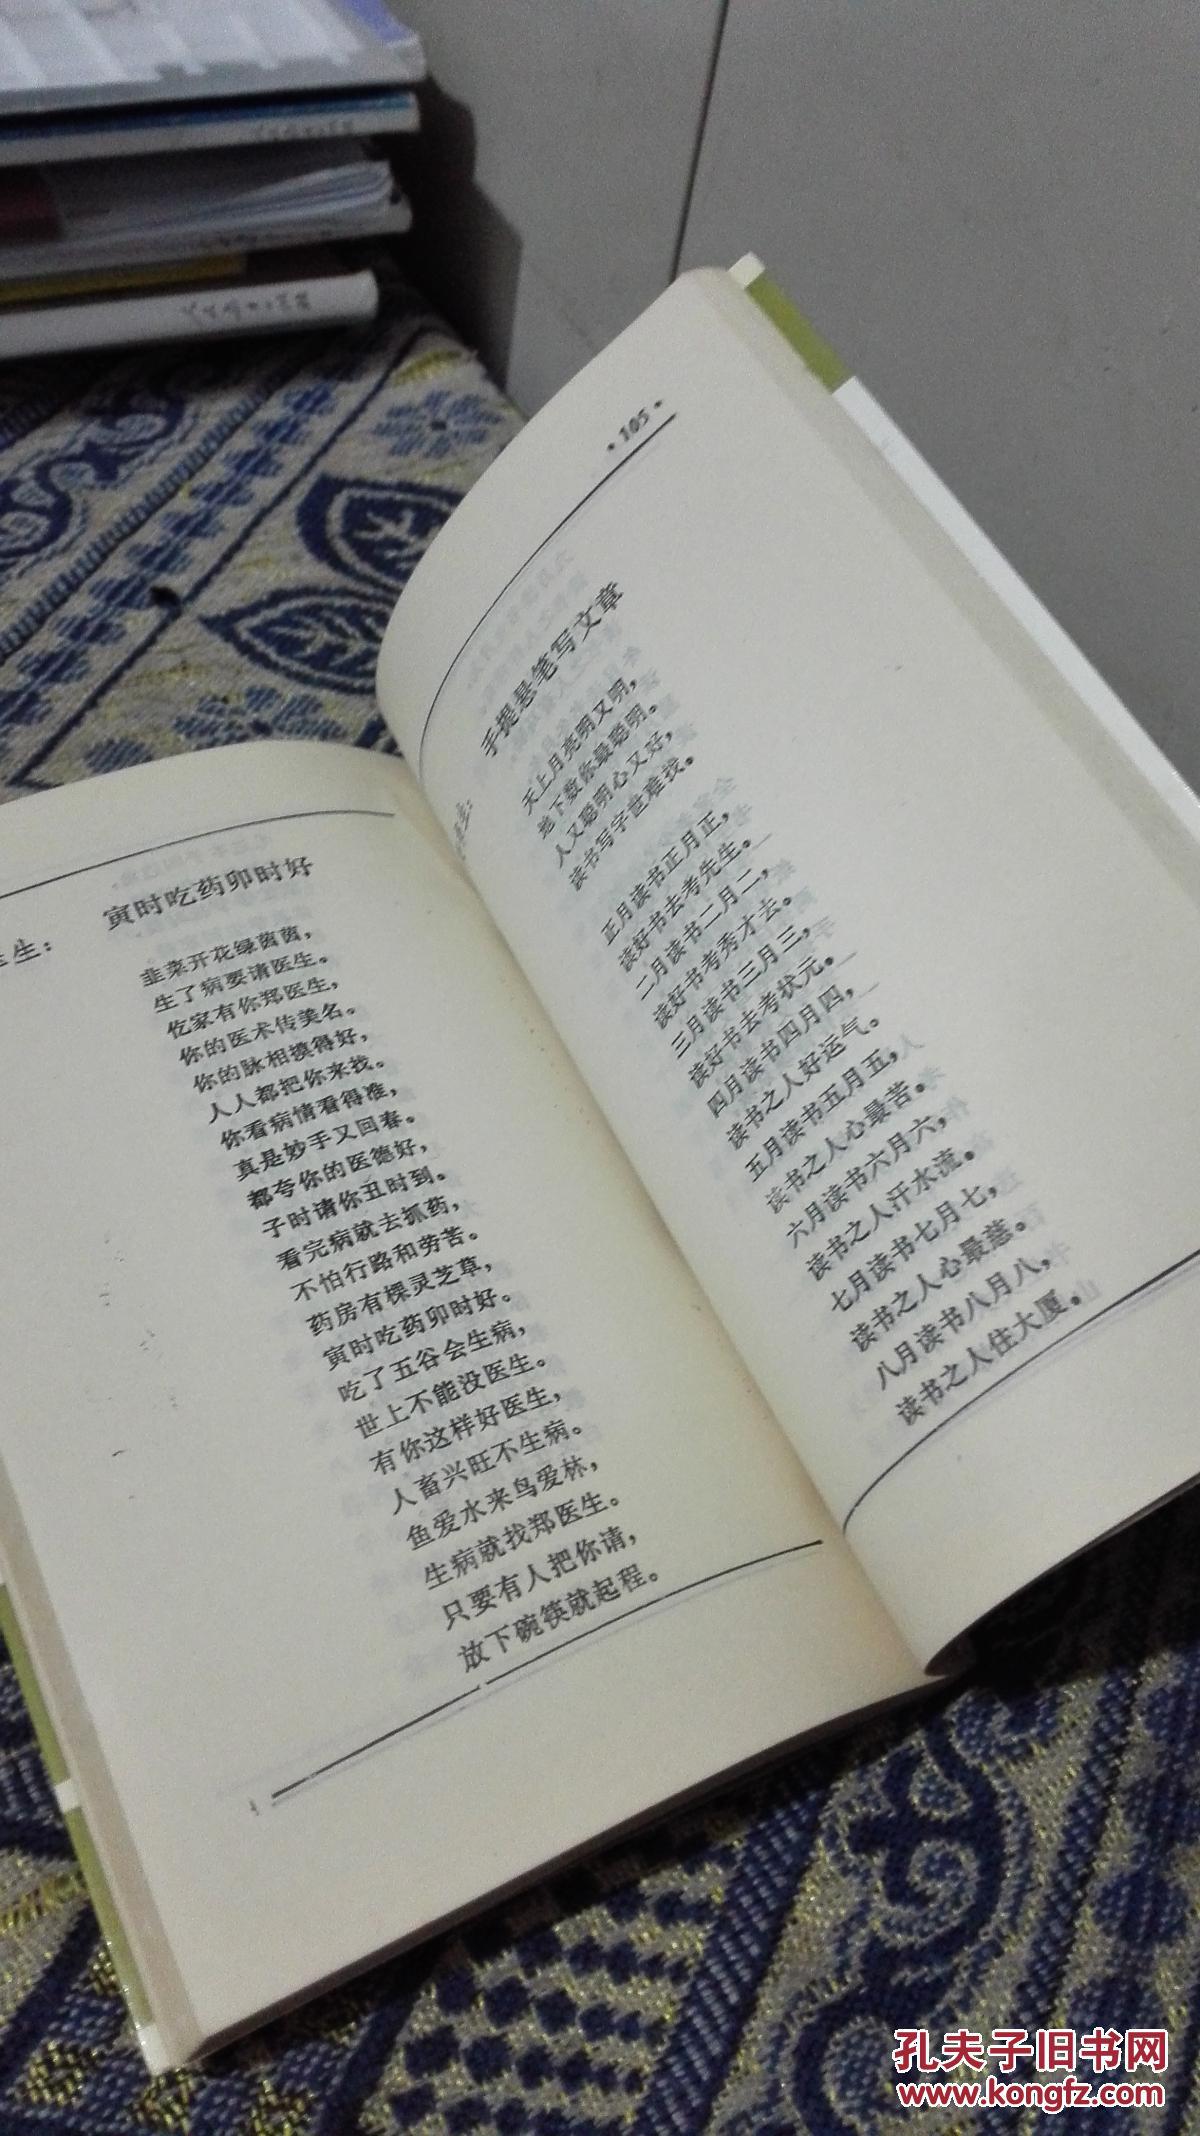 寅时吃药卯时好
生：
韭菜开花绿茵茵，
生了病要请医生。
仡家有你郑医生，
你的医术传美名。
你的脉相摸得好，
人人都把你来找。
你看病情看得准，
真是妙手又回春。
都夸你的医德好，
子时请你丑时到。
看完病就去抓药，
不怕行路和劳苦。
药房有棵灵芝草，
寅时吃药卯时好。
吃了五谷会生病，
世上不能没医生。
有你这样好医生，
人畜兴旺不生病。
鱼爱水来鸟爱林，
生病就找郑医生。
只要有人把你请，
放下碗筷就起程。
·105·
手提悬笔写文章
天上月亮明又明，
地下数你最聪明。
人又聪明心又好，
读书写字世难找。
正月读书正月正，
读好书去考先生。
二月读书二月二，
读好书考秀才去。
三月读书三月三，
读好书去考状元。
四月读书四月四，
读书之人好运气。
五月读书五月五，
读书之人心最苦。
六月读书六月六，
读书之人汗水流。
七月读书七月七，
读书之人心最慈。
八月读书八月八，
读书之人住大厦。
孔夫子旧书网
www.kongfz.com